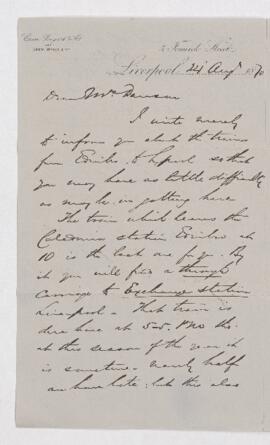 Liverpool, 24 Augt 1870
Dear Mr
I write merely
to inform you about the trains
from Edinbro. to Lpool so that
you may have as little difficulty
as may be in getting here
The train which leaves the
Caledonian station Edinbro at
10 is the best one for you. By
it you will find a through
carriage to Exchange station
Liverpool - That train is
due here at 5
at this season of the year it
is sometimes nearly half
an hour late; but this also